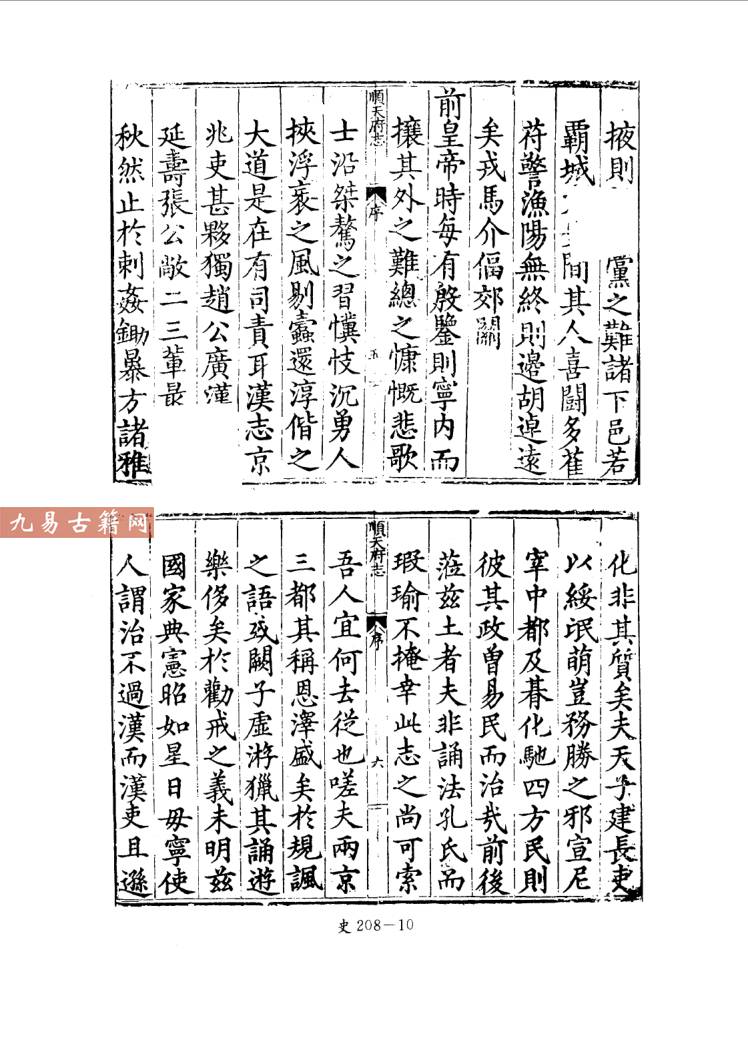 掖則 黨之難諸下邑若
霸城 間其人喜鬪多萑
苻警漁陽無終則邊胡逴遠
矣戎馬介偪郊關
前皇帝時每有殷鑒則寧内而
攘其外之難總之慷慨悲歌
順天府志
序
五
士沿桀驁之習懻忮沉勇人
挾浮衺之風剔蠹還淳偕之
大道是在有司責耳漢志京
兆吏甚夥獨趙公廣漢
延壽張公敞二三輩最
秋然止於刺姦鋤暴方諸雅
九易古籍网
化非其質矣夫天子建長吏
以綏氓萌豈務勝之邪宣尼
宰中都及朞化馳四方民則
彼其政曽易民而治㢤前後
蒞兹土者夫非誦法孔氏而
瑕瑜不掩幸此志之尚可索
順天府志
序
六
吾人宜何去從也嗟夫兩京
三都其稱恩澤盛矣於規諷
之語或闕子虛游獵其誦遊
樂侈矣於勸戒之義未明兹
國家典憲昭如星日毋寧使
人謂治不過漢而漢吏且遜
史 208－10